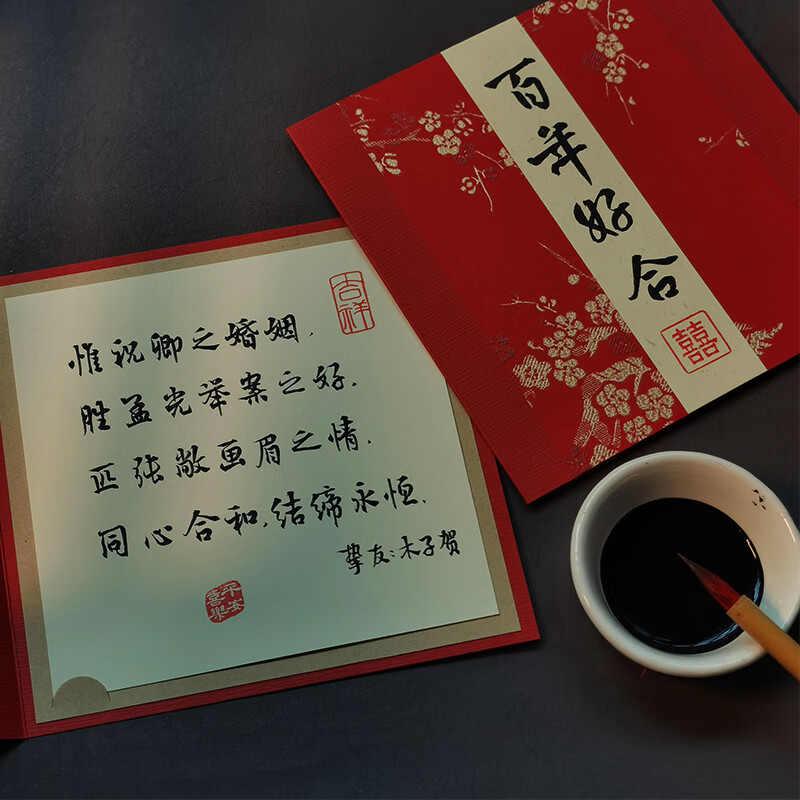 百年好合
囍
吉祥
惟祝卿之婚姻.
胜孟光举案之好.
匹张敞画眉之情.
同心合和,结缔永恒.
挚友:木子贺
平安
喜樂